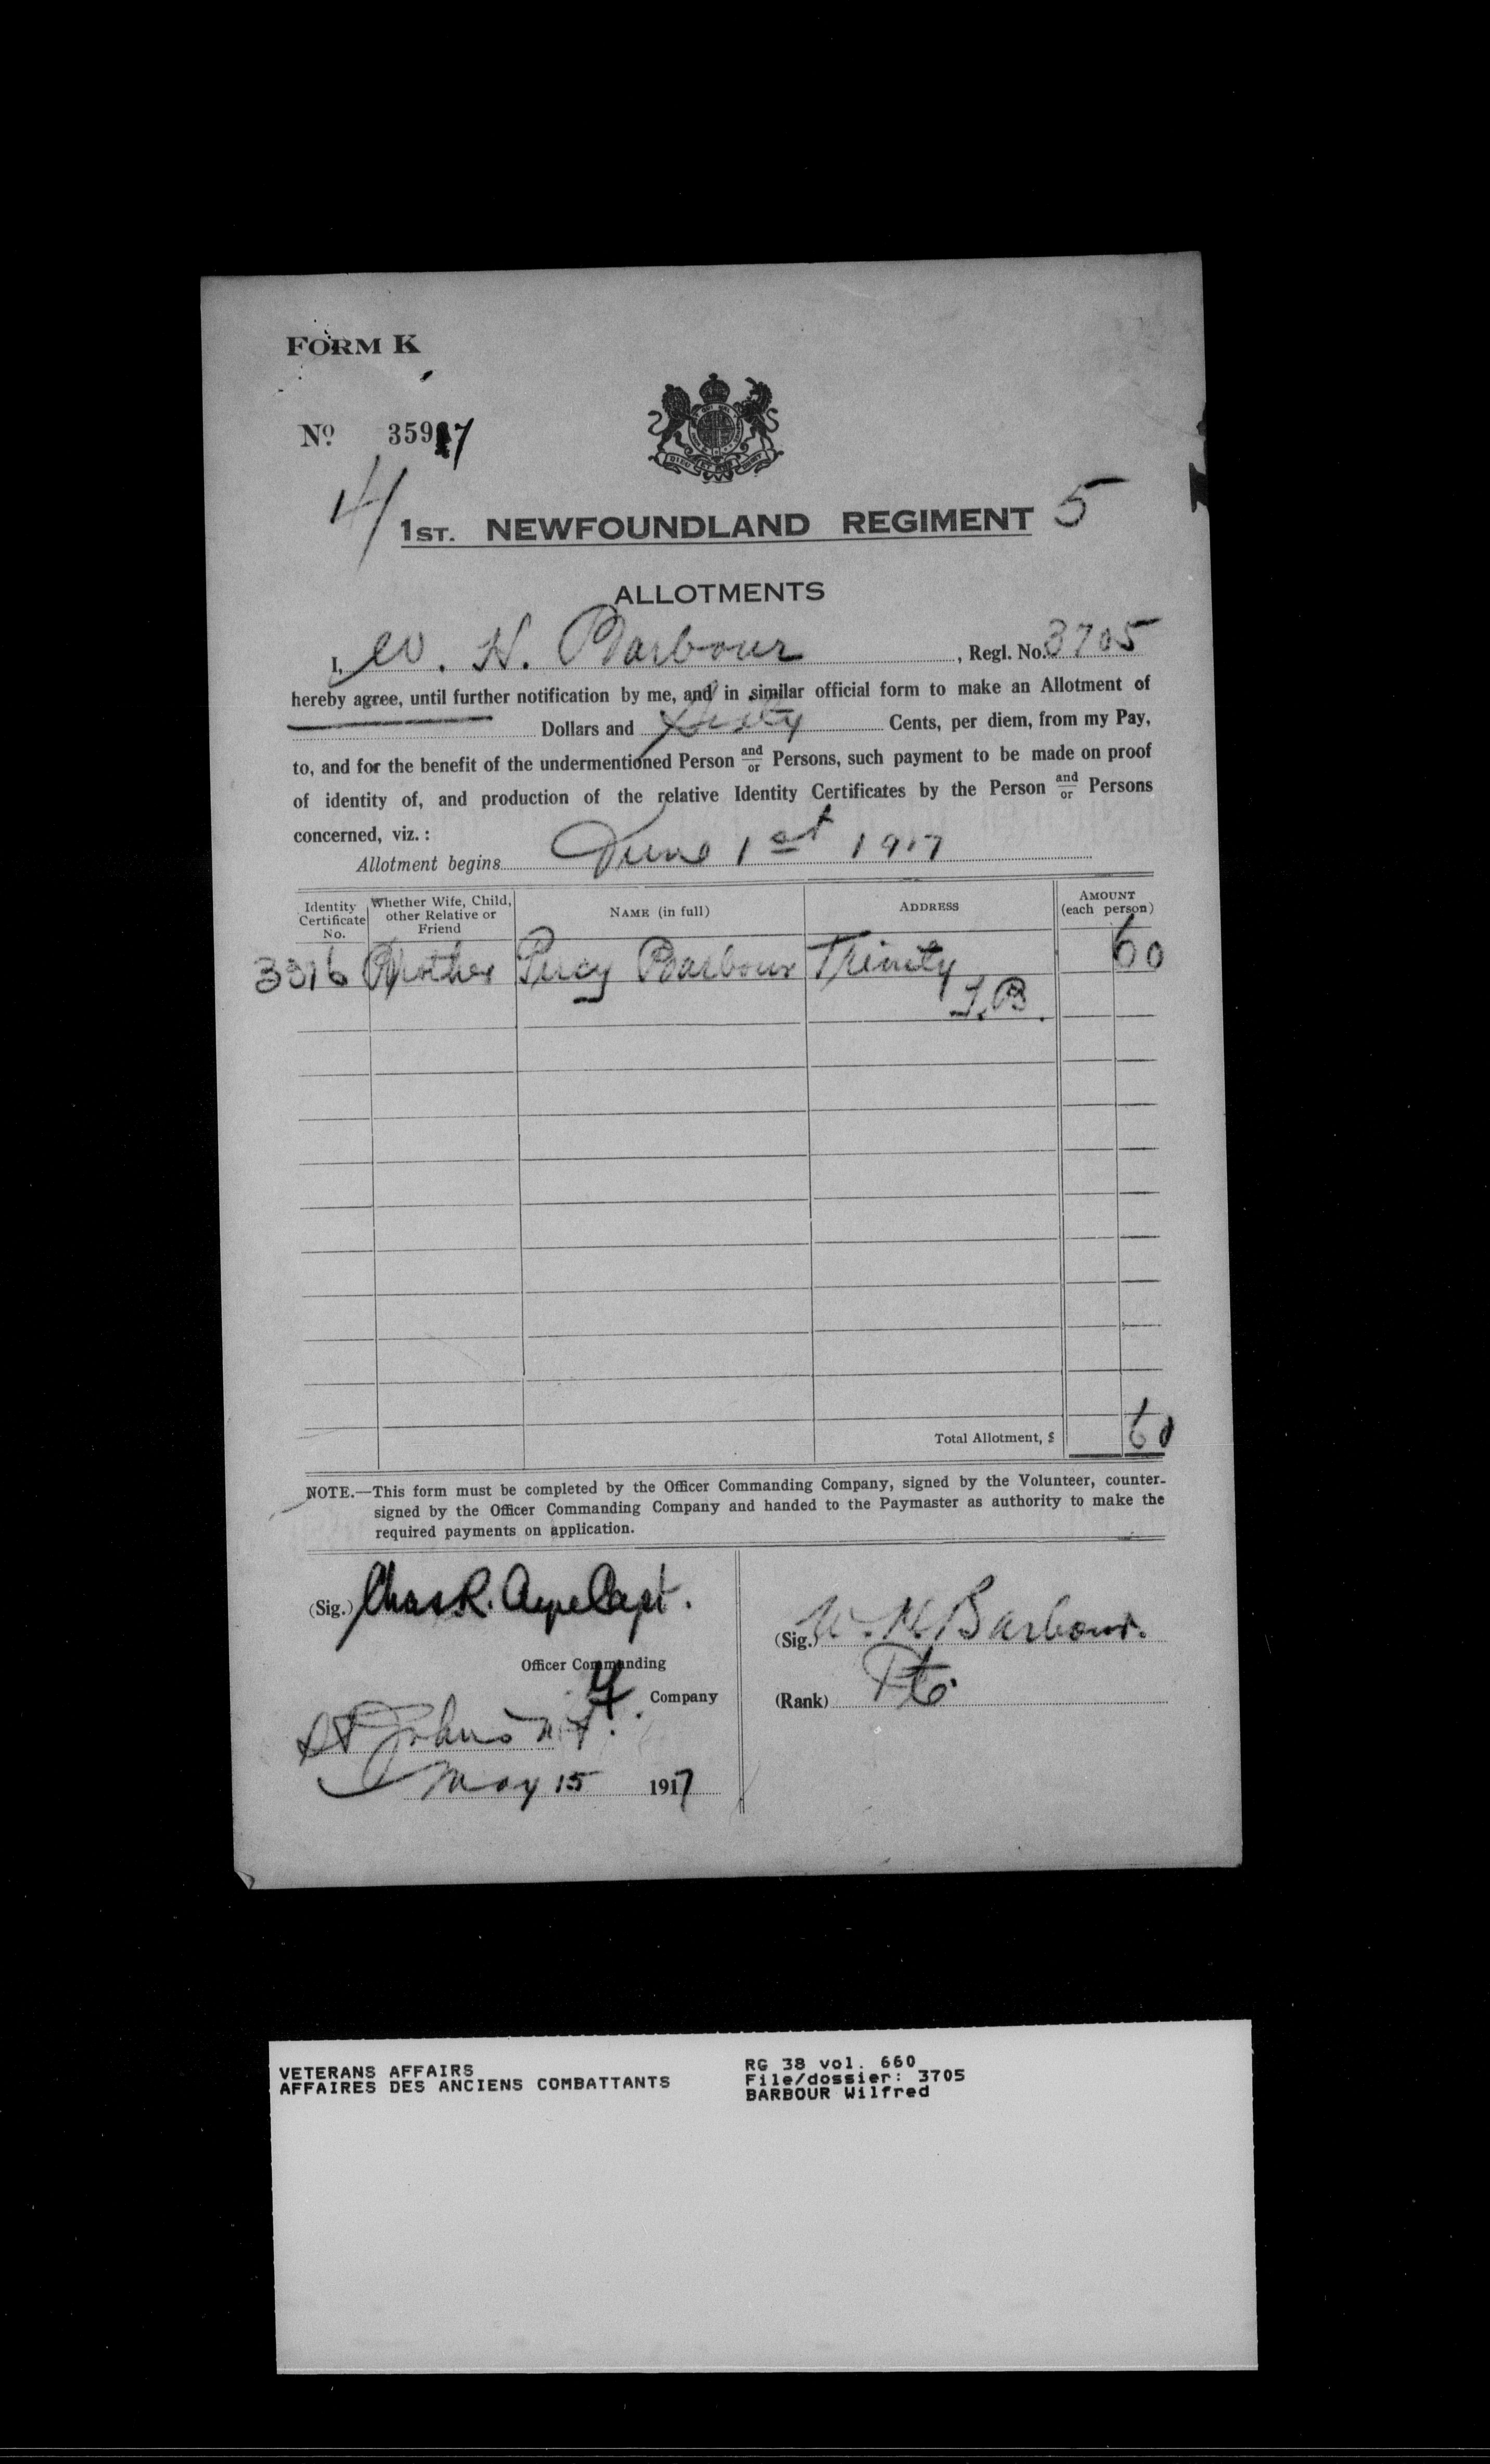 FORM K
No 35917
4
1ST. NEWFOUNDLAND REGIMENT 5
ALLOTMENTS
I, W. H. Barbour, Regl. No. 3705
hereby agree, until further notification by me, and in similar official form to make an Allotment of
Dollars and Sixty Cents, per diem, from my Pay,
to, and for the benefit of the undermentioned Person and/or Persons, such payment to be made on proof
of identity of, and production of the relative Identity Certificates by the Person and/or Persons
concerned, viz. :
Allotment begins June 1st 1917
Identity Certificate No. Whether Wife, Child, other Relative or Friend NAME (in full) ADDRESS AMOUNT (each person)
3316 Percy Barbour Trinity 60
T.B.
Total Allotment, $ 60
NOTE.—This form must be completed by the Officer Commanding Company, signed by the Volunteer, counter-
signed by the Officer Commanding Company and handed to the Paymaster as authority to make the
required payments on application.
(Sig.) Chas R. Ayre Capt.
(Sig.) W. H. Barbour.
Officer Commanding
Company
(Rank) Pte.
St Johns N.F.
May 15 1917
VETERANS AFFAIRS
AFFAIRES DES ANCIENS COMBATTANTS
RG 38 vol. 660
File/dossier: 3705
BARBOUR Wilfred